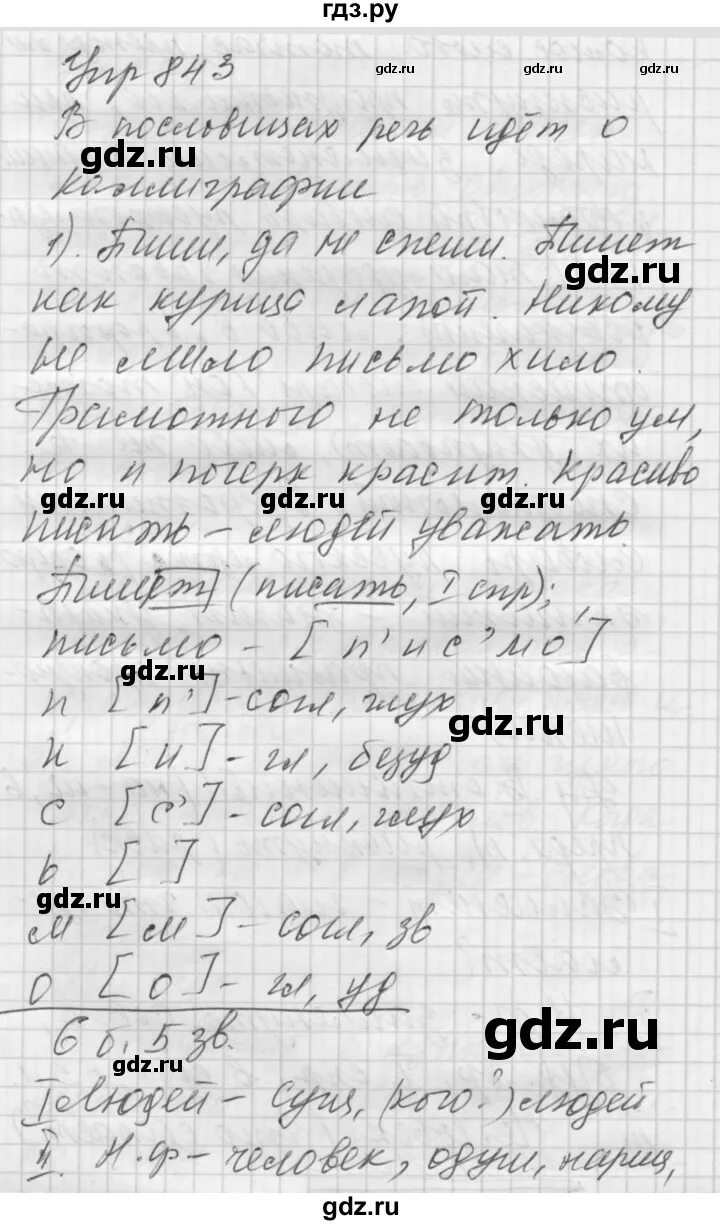 гдз.ру
Упр 843
gdz.ru gdz.ru
В пословицах речь идёт о
gdz.ru
каллиграфии
1). Пиши, да не спеши. Пишет
gdz.ru
как курица лапой. Никому
не мило письмо хило.
gdz.ru
Грамотного не только ум,
но и почерк красит. Красиво
gdz.ru gdz.ru gdz.ru
писать – людей уважать
Пишет (писать, I спр);
письмо – [п'ис'мо́]
gdz.ru
п [п'] – согл, глух
gdz.ru
и [и] – гл, безуд
с [с'] – согл, глух
gdz.ru
ь [ ]
gdz.ru
м [м] – согл, зв
о [о] – гл, уд
gdz.ru
6 б, 5 зв.
gdz.ru
I Людей – сущ, (кого?) людей
II. Н.ф – человек, одуш, нариц,
gdz.ru